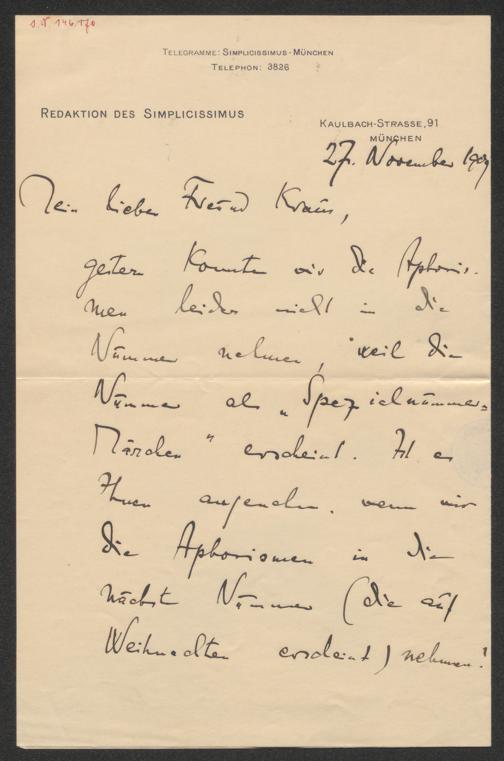 J.N. 146.170
TELEGRAMME: SIMPLICISSIMUS-MÜNCHEN
TELEPHON: 3826
REDAKTION DES SIMPLICISSIMUS
KAULBACH-STRASSE, 91
MÜNCHEN
27. November 1909
Mein lieber Freund Kraus,
gestern konnten wir die Aphoris-
men leider nicht in die
Nummer nehmen, weil die
Nummer als „Spezialnummer-
Märchen" erscheint. Ist es
Ihnen angenehm, wenn wir
die Aphorismen in die
nächste Nummer (die auf
Weihnachten erscheint) nehmen?